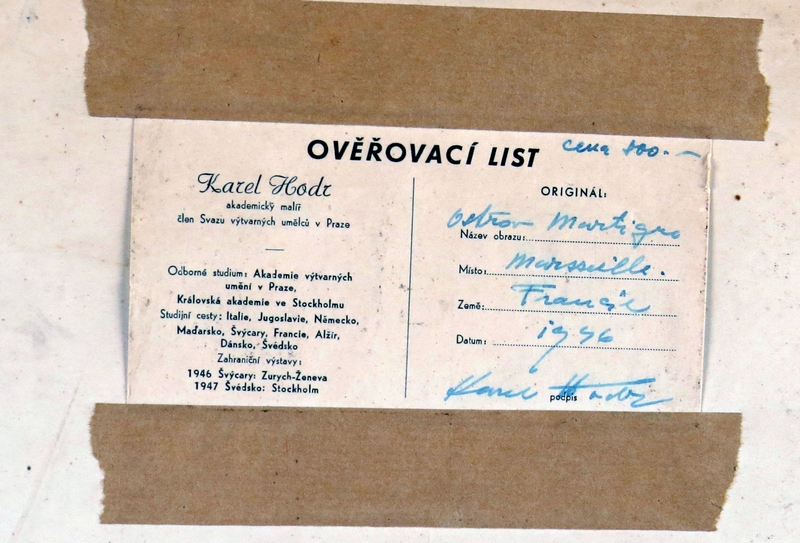 OVĚŘOVACÍ LIST
cena 800.—
Karel Hodr
akademický malíř
člen Svazu výtvarných umělců v Praze
Odborné studium: Akademie výtvarných
umění v Praze,
Královská akademie ve Stockholmu
Studijní cesty: Italie, Jugoslavie, Německo,
Maďarsko, Švýcary, Francie, Alžír,
Dánsko, Švédsko
Zahraniční výstavy:
1946 Švýcary: Zurych-Ženeva
1947 Švédsko: Stockholm
ORIGINÁL:
Název obrazu: Ostrov Martigro
Místo: Marseille.
Země: Francie
Datum: 1946
Karel Hodr
podpis